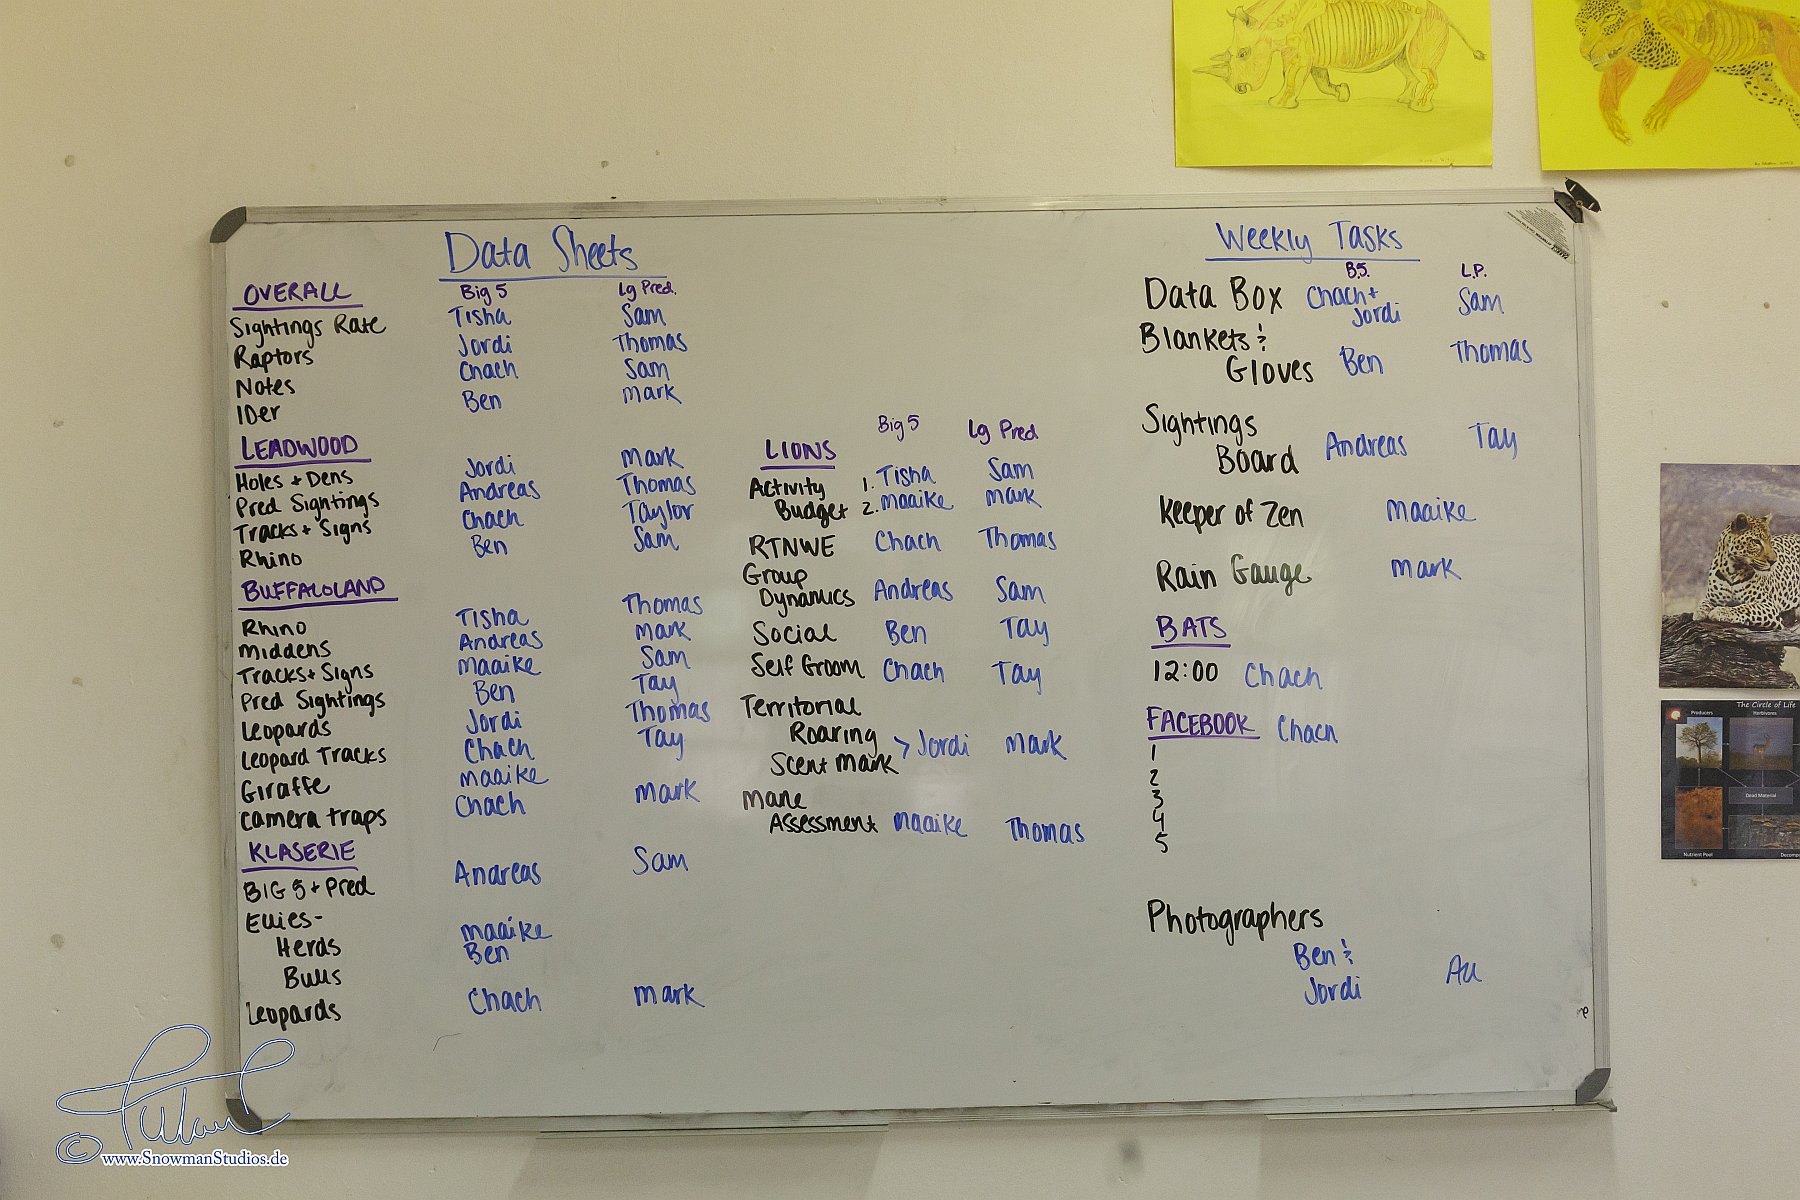 Data Sheets
OVERALL Big 5 Lg Pred.
Sightings Rate Tisha Sam
Raptors Jordi Thomas
Notes Chach Sam
IDer Ben Mark
LEADWOOD
Holes + Dens Jordi Mark
Pred Sightings Andreas Thomas
Tracks + Signs Chach Taylor
Rhino Ben Sam
BUFFALOLAND
Rhino Tisha Thomas
Middens Andreas Mark
Tracks + Signs Maaike Sam
Pred Sightings Ben Tay
Leopards Jordi Thomas
Leopard Tracks Chach Tay
Giraffe Maaike
Camera traps Chach Mark
KLASERIE
BIG 5 + Pred Andreas Sam
Ellies-
Herds Maaike
Bulls Ben
Leopards Chach Mark
LIONS Big 5 Lg Pred
Activity 1. Tisha Sam
Budget 2. Maaike Mark
RTNWE Chach Thomas
Group
Dynamics Andreas Sam
Social Ben Tay
Self Groom Chach Tay
Territorial
Roaring
Scent Mark > Jordi Mark
Mane
Assessment Maaike Thomas
Weekly Tasks
B.5. L.P.
Data Box Chach + Sam
Jordi
Blankets &
Gloves Ben Thomas
Sightings
Board Andreas Tay
Keeper of Zen Maaike
Rain Gauge Mark
BATS
12:00 Chach
FACEBOOK Chach
1
2
3
4
5
Photographers
Ben &
Jordi All
The Circle of Life
Producers Herbivores
Dead Material
Nutrient Pool
© www.SnowmanStudios.de